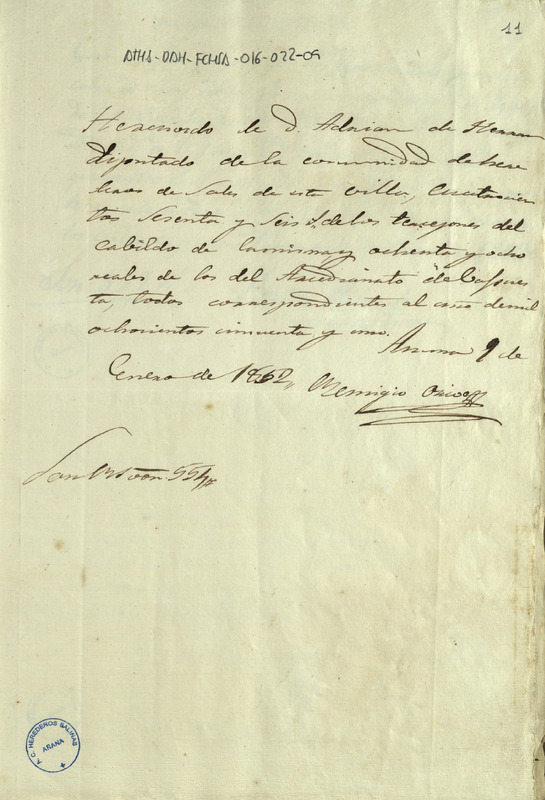 11
ATHA-DAH-FCHSA-016-022-09
He recivido de D. Adrian de Herran
Diputado de la comunidad de here
deros de Sales de esta villa, Cuatrocien
tos sesenta y seis r.s de los tercejones del
cabildo de la misma y ochenta y ocho
reales de los del Arcedianato de la
todos correspondientes al año de mil
ochocientos cincuenta y uno.
Anana 9 de
Enero de 1852,, Remigio
Son 554
A.C. HEREDEROS SALINAS
AÑANA